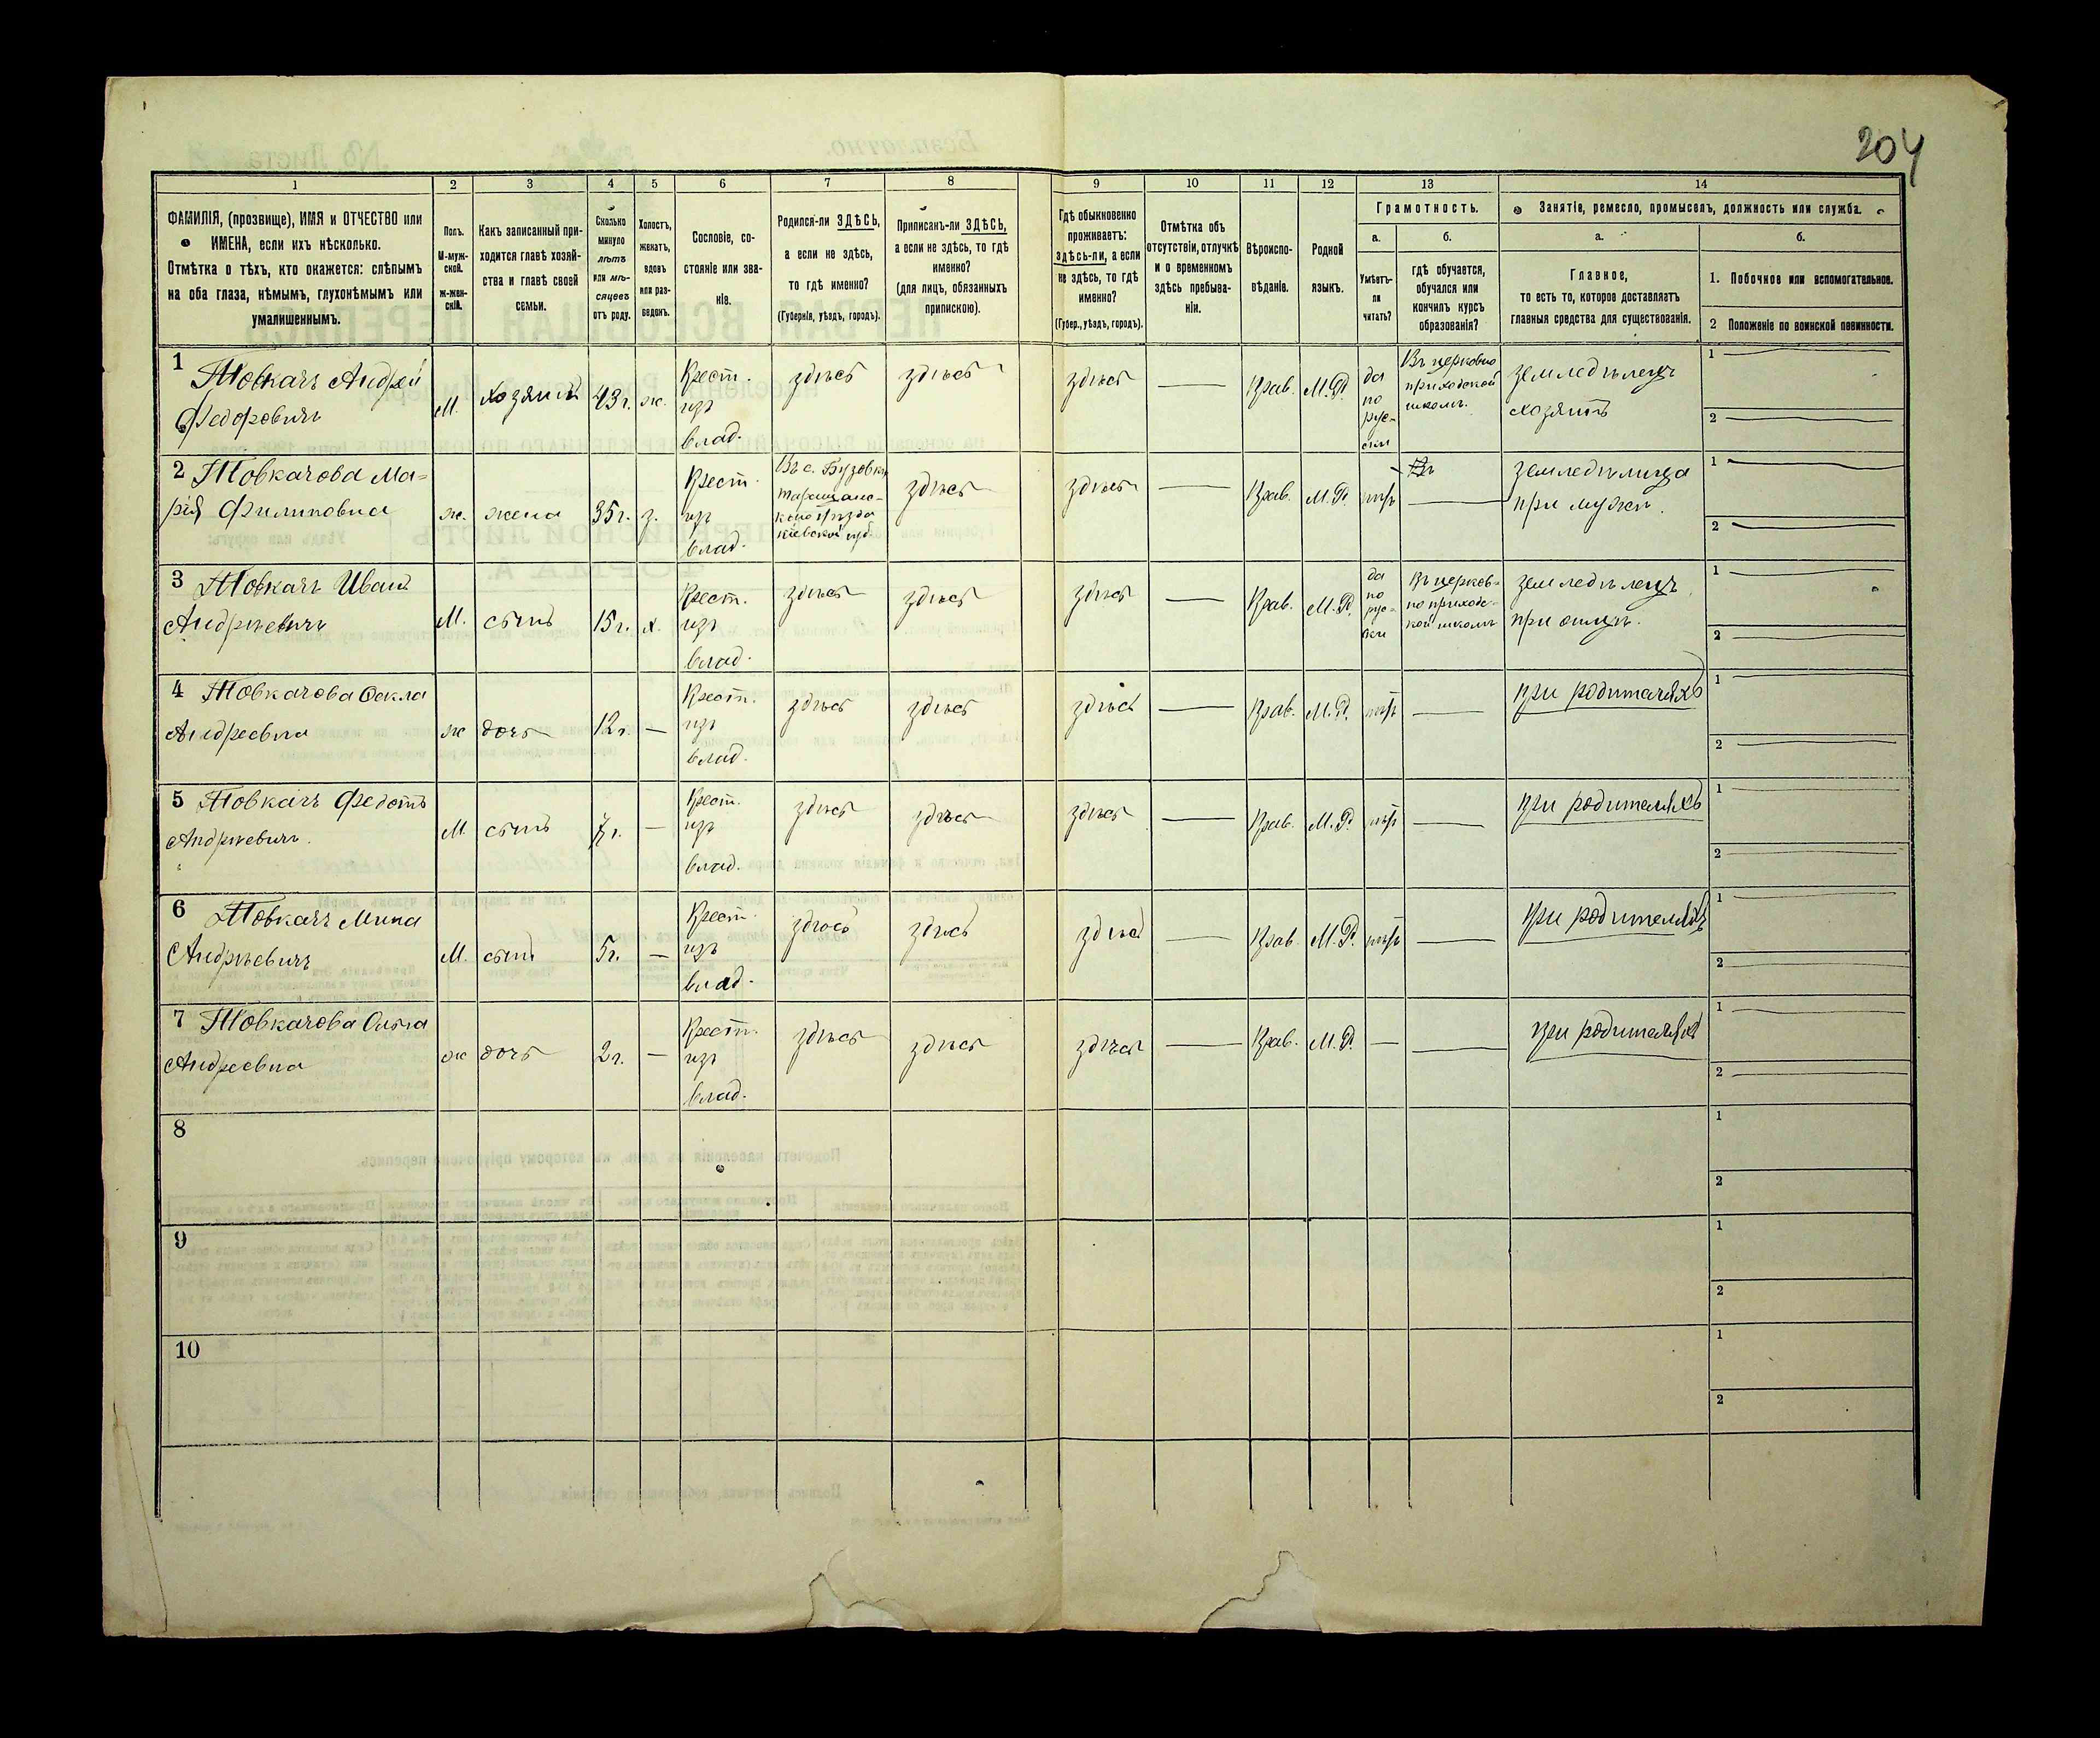 204
1
2
3
4
5
6
7
8
9
10
11
12
13
14
ФАМИЛІЯ, (прозвище), ИМЯ и ОТЧЕСТВО или
ИМЕНА, если ихъ нѣсколько.
Отмѣтка о тѣхъ, кто окажется: слѣпымъ
на оба глаза, нѣмымъ, глухонѣмымъ или
умалишеннымъ.
Полъ.
М-муж-
ской.
ж-жен-
скій.
Какъ записанный при-
ходится главѣ хозяй-
ства и главѣ своей
семьи.
Сколько
минуло
лѣтъ
или мѣ-
сяцевъ
отъ роду.
Холостъ,
женатъ,
вдовъ
или раз-
веденъ.
Сословіе, со-
стояніе или зва-
ніе.
Родился-ли ЗДѢСЬ,
а если не здѣсь,
то гдѣ именно?
(Губернія, уѣздъ, городъ).
Приписанъ-ли ЗДѢСЬ,
а если не здѣсь, то гдѣ
именно?
(для лицъ, обязанныхъ
припискою).
Гдѣ обыкновенно
проживаетъ:
здѣсь-ли, а если
не здѣсь, то гдѣ
именно?
(Губер., уѣздъ, городъ).
Отмѣтка объ
отсутствіи, отлучкѣ
и о временномъ
здѣсь пребыва-
ніи.
Вѣроиспо-
вѣданіе.
Родной
языкъ.
Грамотность.
а.
Умѣетъ-
ли
читать?
б.
гдѣ обучается,
обучался или
кончилъ курсъ
образованія?
Занятіе, ремесло, промыселъ, должность или служба.
а.
Главное,
то есть то, которое доставляетъ
главныя средства для существованія.
б.
1. Побочное или вспомогательное.
2 Положеніе по воинской повинности.
1 Товкачъ Андрей
Федоровичъ
М.
хозяинъ
43 г.
ж.
Крест.
изъ
влад.
здѣсь
здѣсь
здѣсь
Прав.
М.Р.
да
по
рус-
ски
Въ церковно
приходской
школѣ.
земледѣлецъ
хозяинъ
1
2
2 Товкачова Ма-
рія Филиповна
ж.
жена
35 г.
з.
Крест.
изъ
влад.
Въ с. Бузовкѣ
Таращанс-
каго уѣзда
Кіевской губ.
здѣсь
здѣсь
Прав.
М.Р.
нѣтъ
земледѣлица
при мужѣ.
1
2
3 Товкачъ Иванъ
Андрѣевичъ
М.
сынъ
15 г.
х.
Крест.
изъ
влад.
здѣсь
здѣсь
здѣсь
Прав.
М.Р.
да
по
рус-
ски
Въ церков-
но приходс-
кой школѣ
земледѣлецъ
при отцѣ.
1
2
4 Товкачова Фекла
Андреевна
ж
дочь
12 г.
Крест.
изъ
влад.
здѣсь
здѣсь
здѣсь
Прав.
М.Р.
нѣтъ
при родителяхъ
1
2
5 Товкачъ Федотъ
Андрѣевичъ.
М.
сынъ
7 г.
Крест.
изъ
влад.
здѣсь
здѣсь
здѣсь
Прав.
М.Р.
нѣтъ
при родителяхъ
1
2
6 Товкачъ Мина
Андрѣевичъ
М.
сынъ
5 г.
Крест.
изъ
влад.
здѣсь
здѣсь
здѣсь
Прав.
М.Р.
нѣтъ
при родителяхъ
1
2
7 Товкачова Ольга
Андреевна
ж
дочь
2 г.
Крест.
изъ
влад.
здѣсь
здѣсь
здѣсь
Прав.
М.Р.
при родителяхъ
1
2
8
1
2
9
1
2
10
1
2